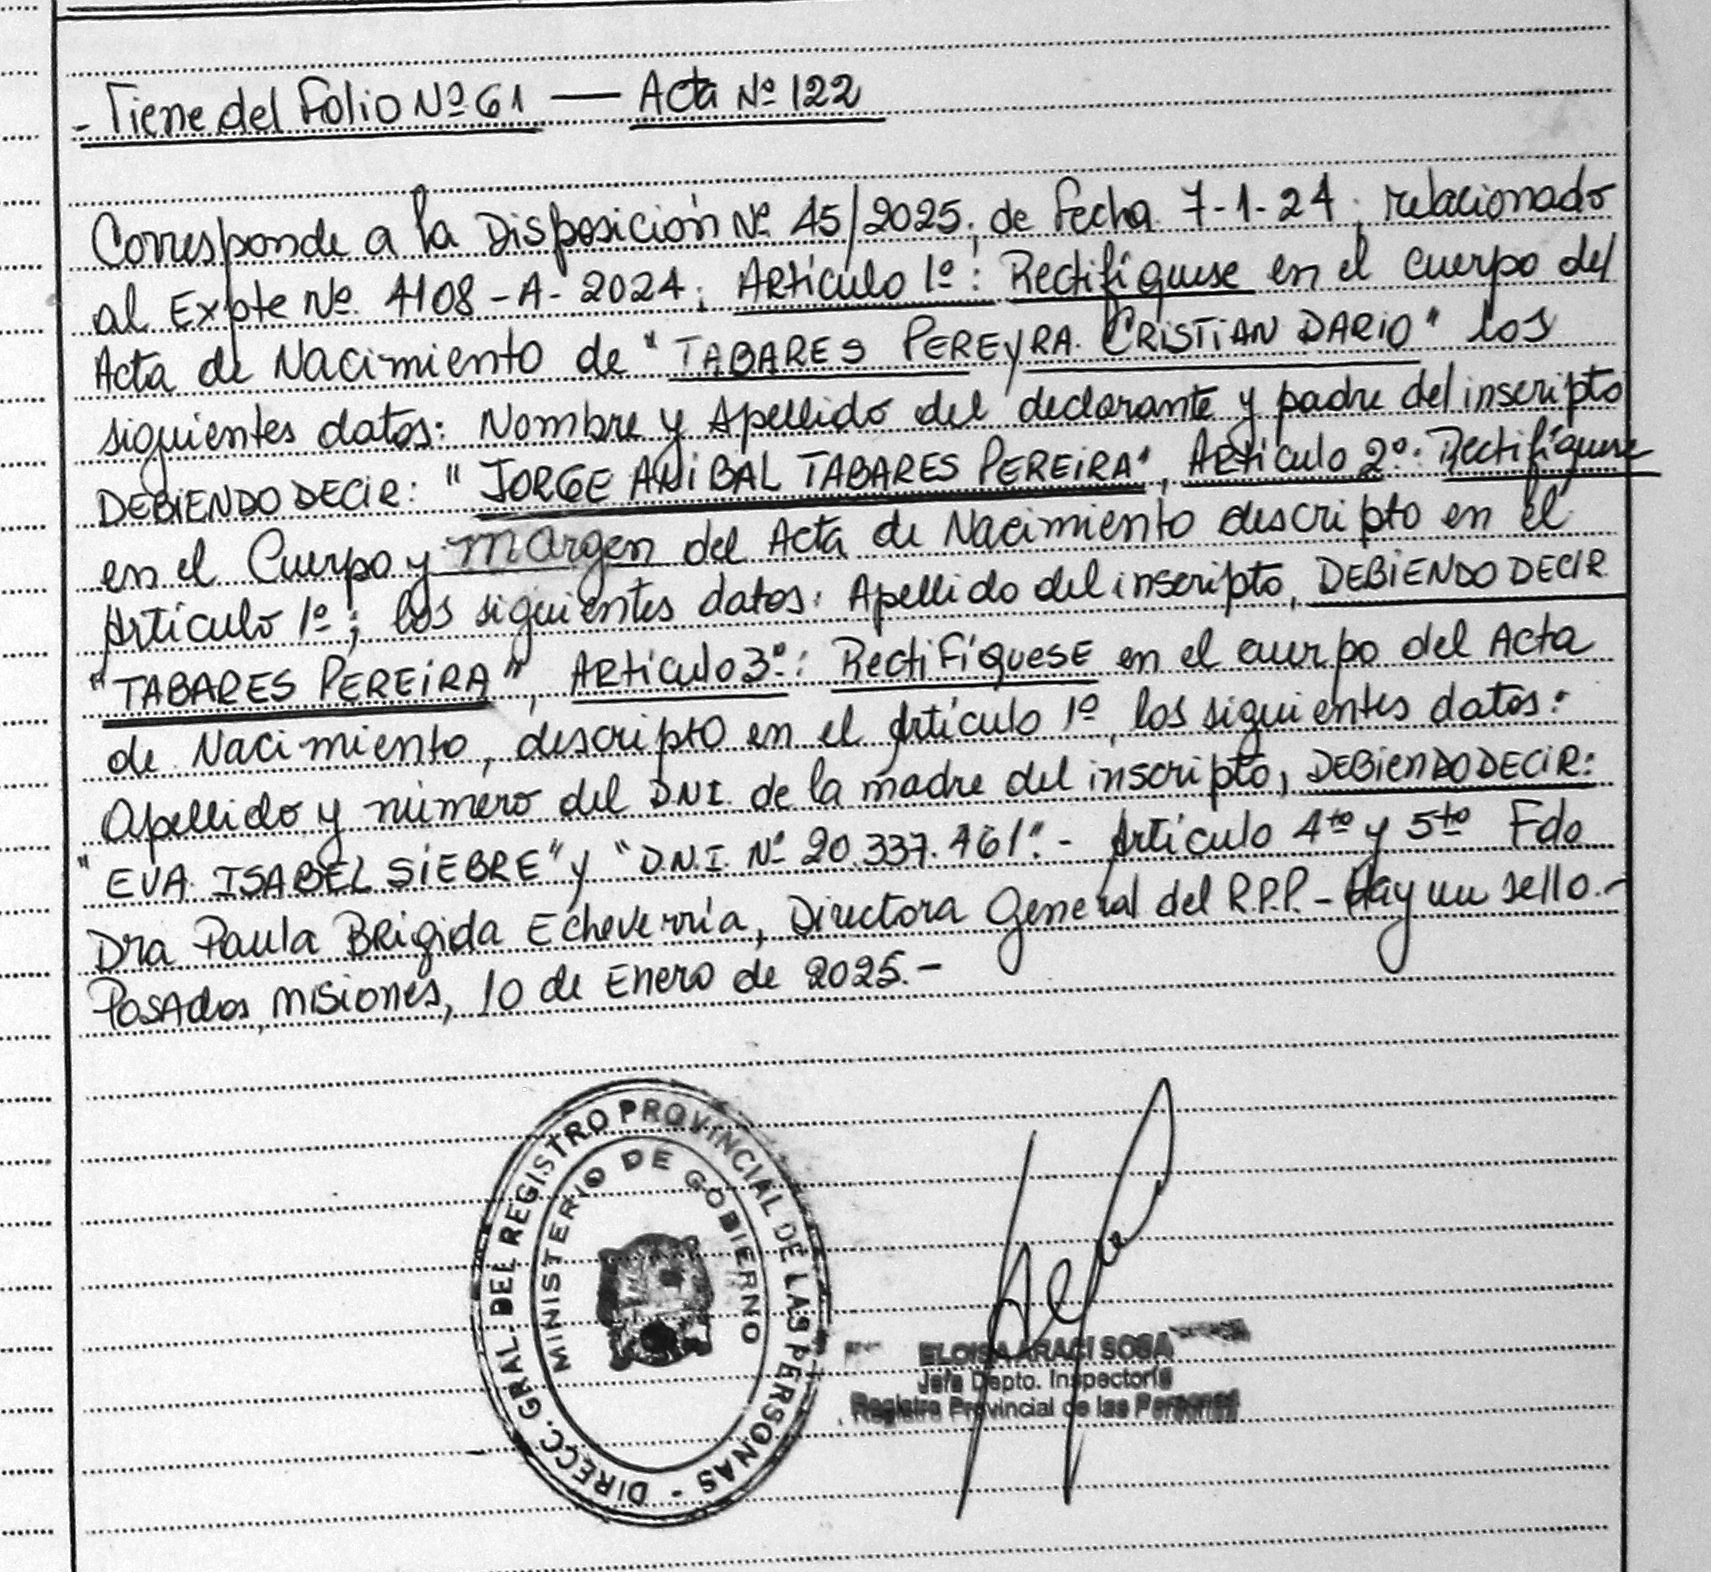 - Tiene del Folio Nº 61 — Acta Nº 122
Corresponde a la Disposición Nº 45/2025, de fecha 7-1-24, relacionado
al Expte Nº 4108-A-2024; Artículo 1º: Rectifíquese en el cuerpo del
Acta de Nacimiento de "TABARES PEREYRA CRISTIAN DARIO" los
siguientes datos: Nombre y Apellido del declarante y padre del inscripto
DEBIENDO DECIR: "JORGE ANIBAL TABARES PEREIRA", Artículo 2º: Rectifíquese
en el Cuerpo y Margen del Acta de Nacimiento descripto en el
Artículo 1º; los siguientes datos: Apellido del inscripto, DEBIENDO DECIR
"TABARES PEREIRA", Artículo 3º: RectiFíQUESE en el cuerpo del Acta
de Nacimiento, descripto en el Artículo 1º, los siguientes datos:
Apellido y número del DNI de la madre del inscripto, DEBIENDO DECIR:
"EVA ISABEL SIEBRE" y "D.N.I. Nº 20.337.461".- Artículo 4to y 5to Fdo
Dra Paula Brigida Echeverría, Directora General del R.P.P.- Hay un sello.-
Posadas, Misiones, 10 de Enero de 2025.-
DIRECC. GRAL. DEL REGISTRO PROVINCIAL DE LAS PERSONAS -
MINISTERIO DE GOBIERNO
ELOISA ARACI SOSA
Jefa Depto. Inspectoría
Registro Provincial de las Personas